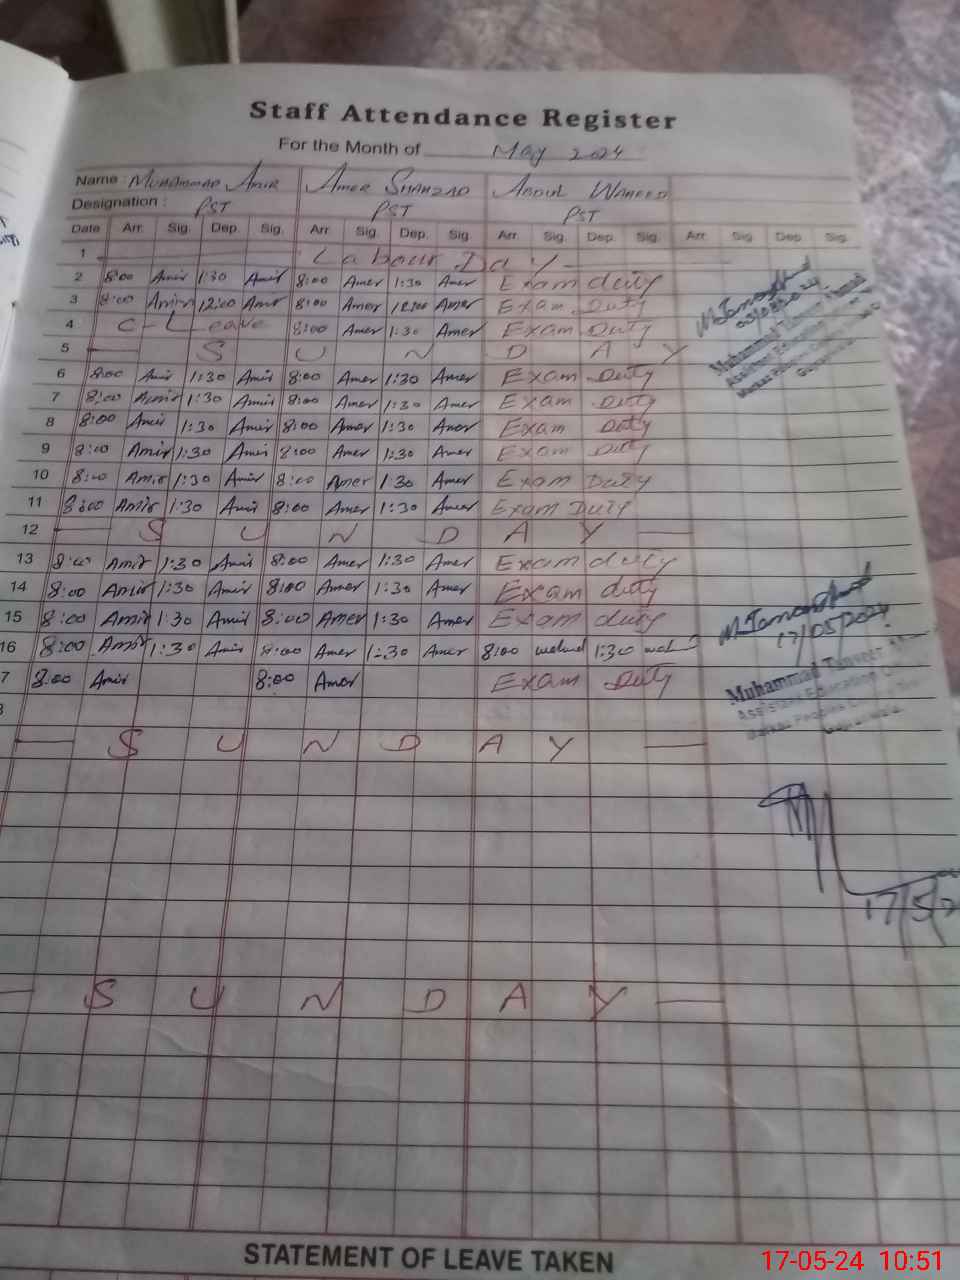 Staff Attendance Register
For the Month of May 2024
Name : Muhammad Amir Amer Shahzad Abdul Waheed
Designation : PST PST PST
Date Arr. Sig. Dep. Sig. Arr. Sig. Dep. Sig. Arr. Sig. Dep. Sig. Arr. Sig. Dep. Sig.
1 Labour Day
2 8:00 Amir 1:30 Amir 8:00 Amer 1:30 Amer Exam duty
3 8:00 Amir 12:00 Amir 8:00 Amer 12:00 Amer Exam Duty
4 C-Leave 8:00 Amer 1:30 Amer Exam Duty
5 S U N D A Y
6 8:00 Amir 1:30 Amir 8:00 Amer 1:30 Amer Exam Duty
7 8:00 Amir 1:30 Amir 8:00 Amer 1:30 Amer Exam Duty
8 8:00 Amir 1:30 Amir 8:00 Amer 1:30 Amer Exam Duty
9 8:00 Amir 1:30 Amir 8:00 Amer 1:30 Amer Exam Duty
10 8:00 Amir 1:30 Amir 8:00 Amer 1:30 Amer Exam Duty
11 8:00 Amir 1:30 Amir 8:00 Amer 1:30 Amer Exam Duty
12 S U N D A Y
13 8:00 Amir 1:30 Amir 8:00 Amer 1:30 Amer Exam duty
14 8:00 Amir 1:30 Amir 8:00 Amer 1:30 Amer Exam duty
15 8:00 Amir 1:30 Amir 8:00 Amer 1:30 Amer Exam duty
16 8:00 Amir 1:30 Amir 8:00 Amer 1:30 Amer 8:00 1:30
7 8:00 Amir 8:00 Amer Exam Duty
S U N D A Y
S U N D A Y
17/05/2024
Muhammad Tanveer
Assistant Education
17/5/2
STATEMENT OF LEAVE TAKEN
17-05-24 10:51